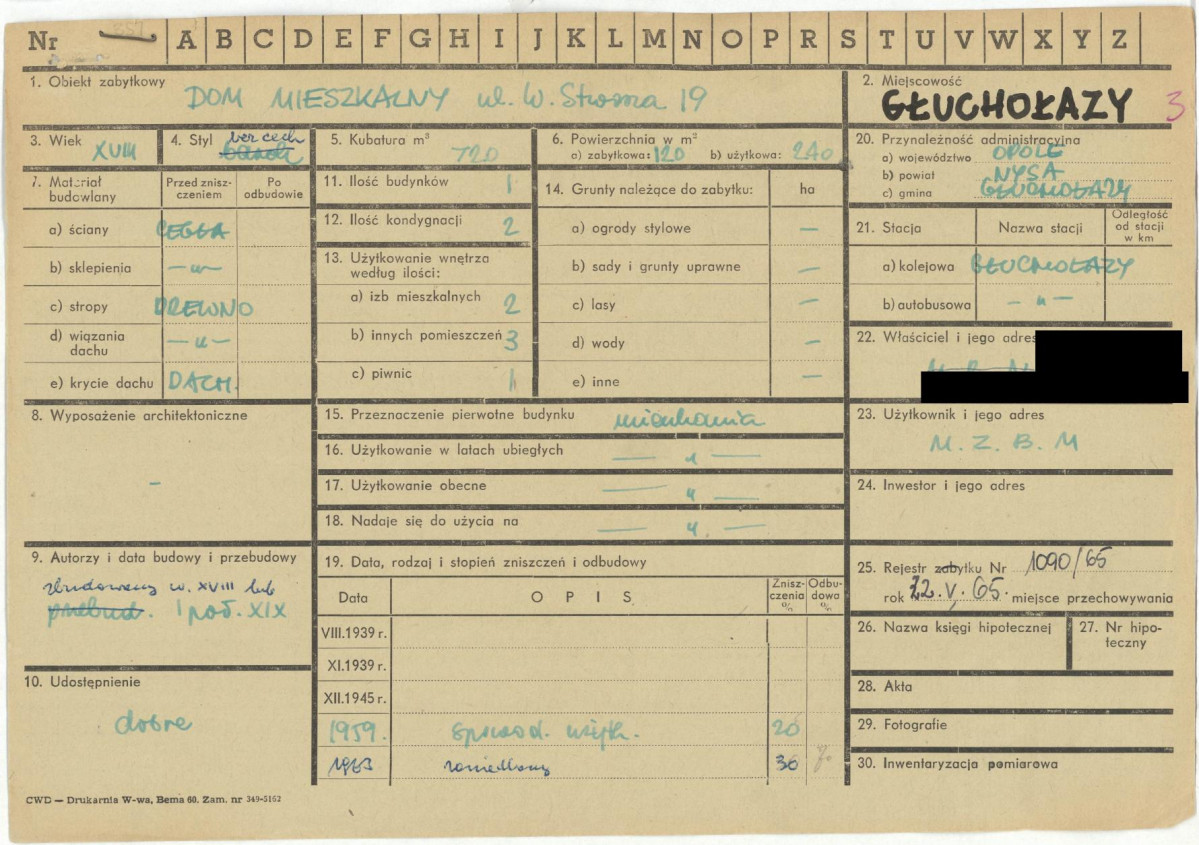 Nr A B C D E F G H I J K L M N O P R S T U V W X Y Z
1. Obiekt zabytkowy
DOM MIESZKALNY ul. W. Stwosza 19
2. Miejscowość
GŁUCHOŁAZY 3
3. Wiek
XVIII
4. Styl bez cech
barok
5. Kubatura m³
720
6. Powierzchnia w m²
a) zabytkowa: 120 b) użytkowa: 240
7. Materiał budowlany
Przed zniszczeniem
Po odbudowie
a) ściany CEGŁA
b) sklepienia — u —
c) stropy DREWNO
d) wiązania dachu — u —
e) krycie dachu DACH.
8. Wyposażenie architektoniczne
–
9. Autorzy i data budowy i przebudowy
zbudowany w. XVIII lub
przebud. I poł. XIX
10. Udostępnienie
dobre
11. Ilość budynków 1
12. Ilość kondygnacji 2
13. Użytkowanie wnętrza według ilości:
a) izb mieszkalnych 2
b) innych pomieszczeń 3
c) piwnic 1
14. Grunty należące do zabytku: ha
a) ogrody stylowe –
b) sady i grunty uprawne –
c) lasy –
d) wody –
e) inne –
15. Przeznaczenie pierwotne budynku mieszkania
16. Użytkowanie w latach ubiegłych — u —
17. Użytkowanie obecne — u —
18. Nadaje się do użycia na — u —
19. Data, rodzaj i stopień zniszczeń i odbudowy
Data
OPIS
Zniszczenia %
Odbudowa %
VIII.1939 r.
XI.1939 r.
XII.1945 r.
1959. 20
1963 zaniedbany 30 %
20. Przynależność administracyjna
a) województwo OPOLE
b) powiat NYSA
c) gmina GŁUCHOŁAZY
21. Stacja
Nazwa stacji
Odległość od stacji w km
a) kolejowa GŁUCHOŁAZY
b) autobusowa – u –
22. Właściciel i jego adres
23. Użytkownik i jego adres
M. Z. B. M
24. Inwestor i jego adres
25. Rejestr zabytku Nr 1090/65
rok 22.V.65. miejsce przechowywania
26. Nazwa księgi hipotecznej
27. Nr hipoteczny
28. Akta
29. Fotografie
30. Inwentaryzacja pomiarowa
CWD — Drukarnia W-wa, Bema 60. Zam. nr 349-5162